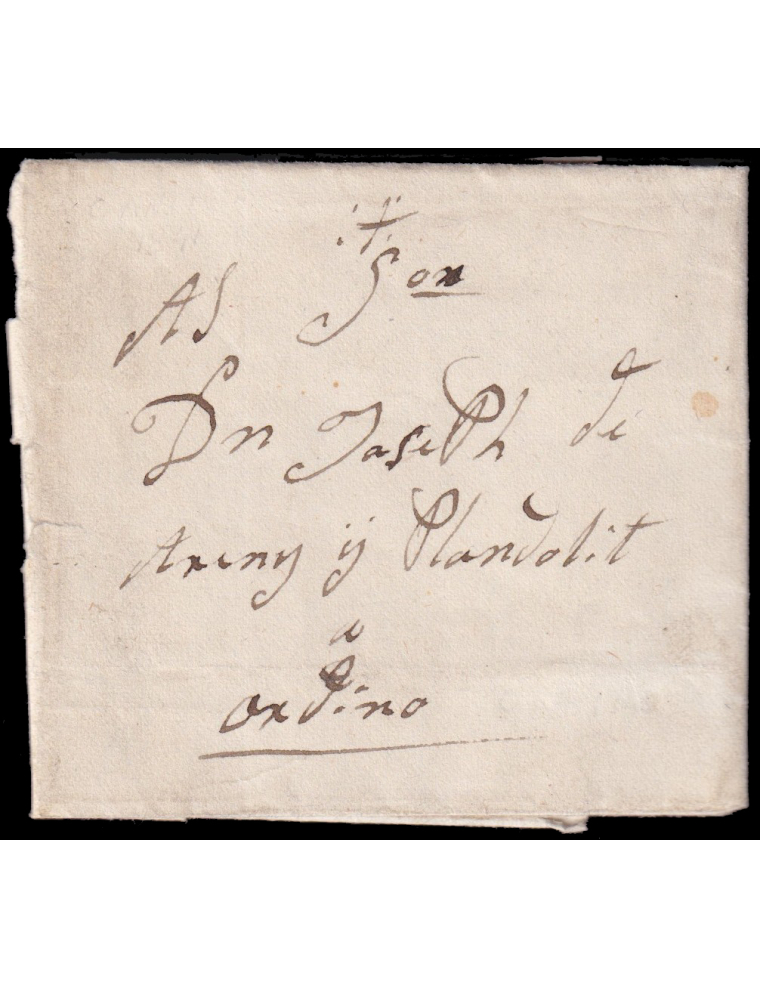 Al Sor
Dn Joseph de
Areny ÿ Plandolit
a
ordino